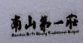 南山第一在